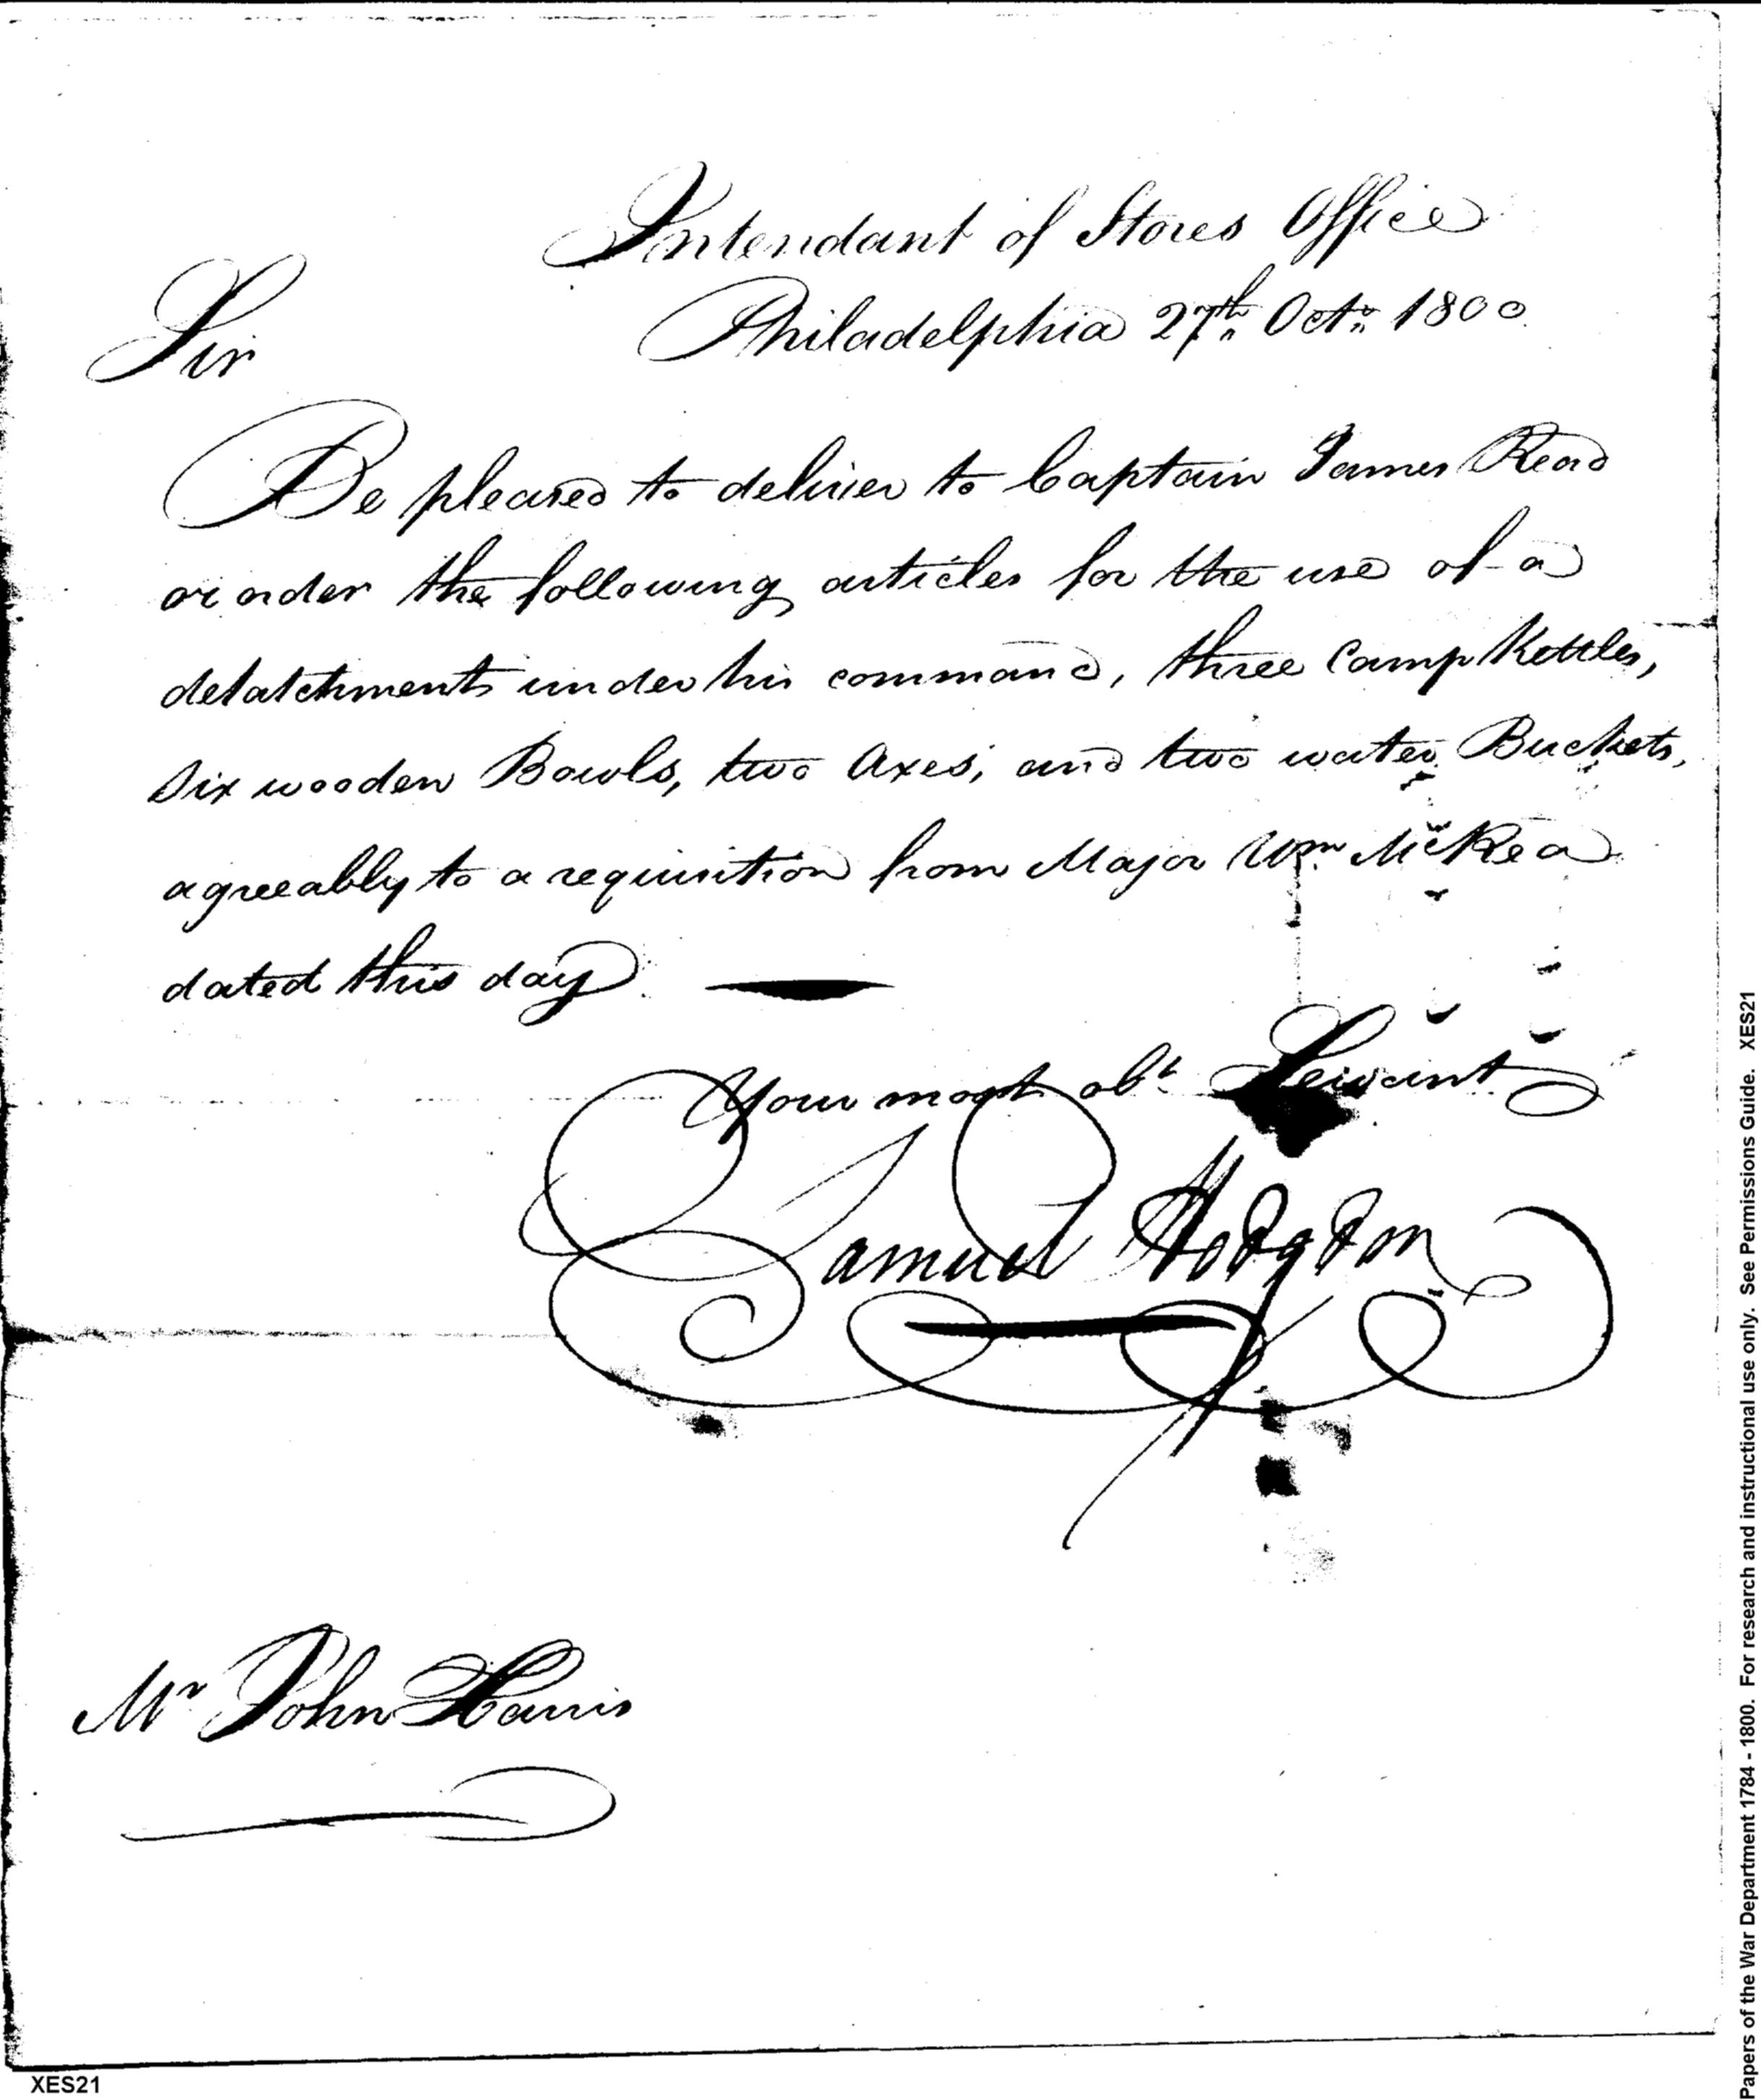 Intendant of Stores Office
Philadelphia 27th Octr 1800
Sir
Be pleased to deliver to Captain James Read
or order the following articles for the use of a
detatchment under his command, three Camp Kettles,
Six wooden Bowls, two Axes, and two water Buckets,
agreeably to a requisition from Major Wm McRea
dated this day
Your most obt Servant
Samuel Hodgdon
Mr John Harris
XES21
Papers of the War Department 1784 - 1800. For research and instructional use only. See Permissions Guide. XES21